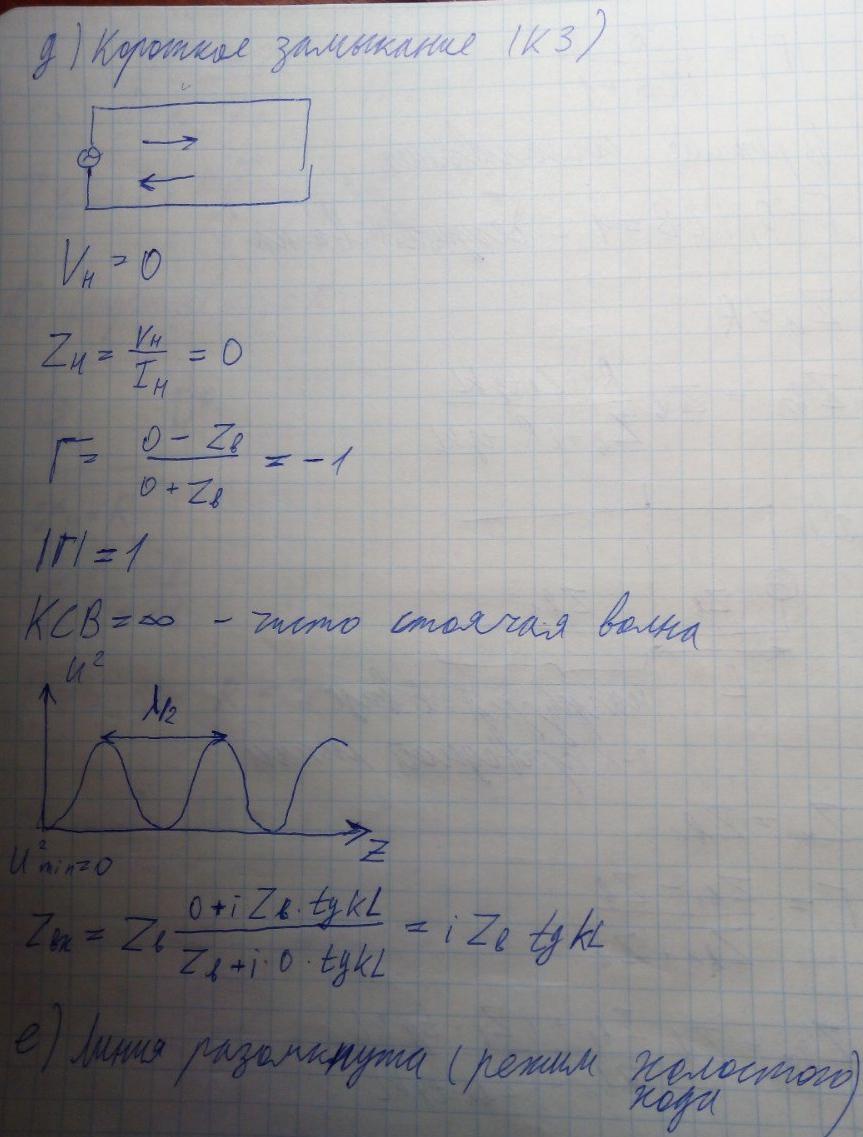 д) Короткое замыкание (КЗ)
Vн = 0
Zн = Vн/Iн = 0
Г = (0 - Zв)/(0 + Zв) = -1
|Г| = 1
КСВ = ∞ - чисто стоячая волна
U²
λ/2
Z
U²min = 0
Zвх = Zв (0 + i Zв · tg kL)/(Zв + i · 0 · tg kL) = i Zв tg kL
е) Линия разомкнута (режим холостого хода)